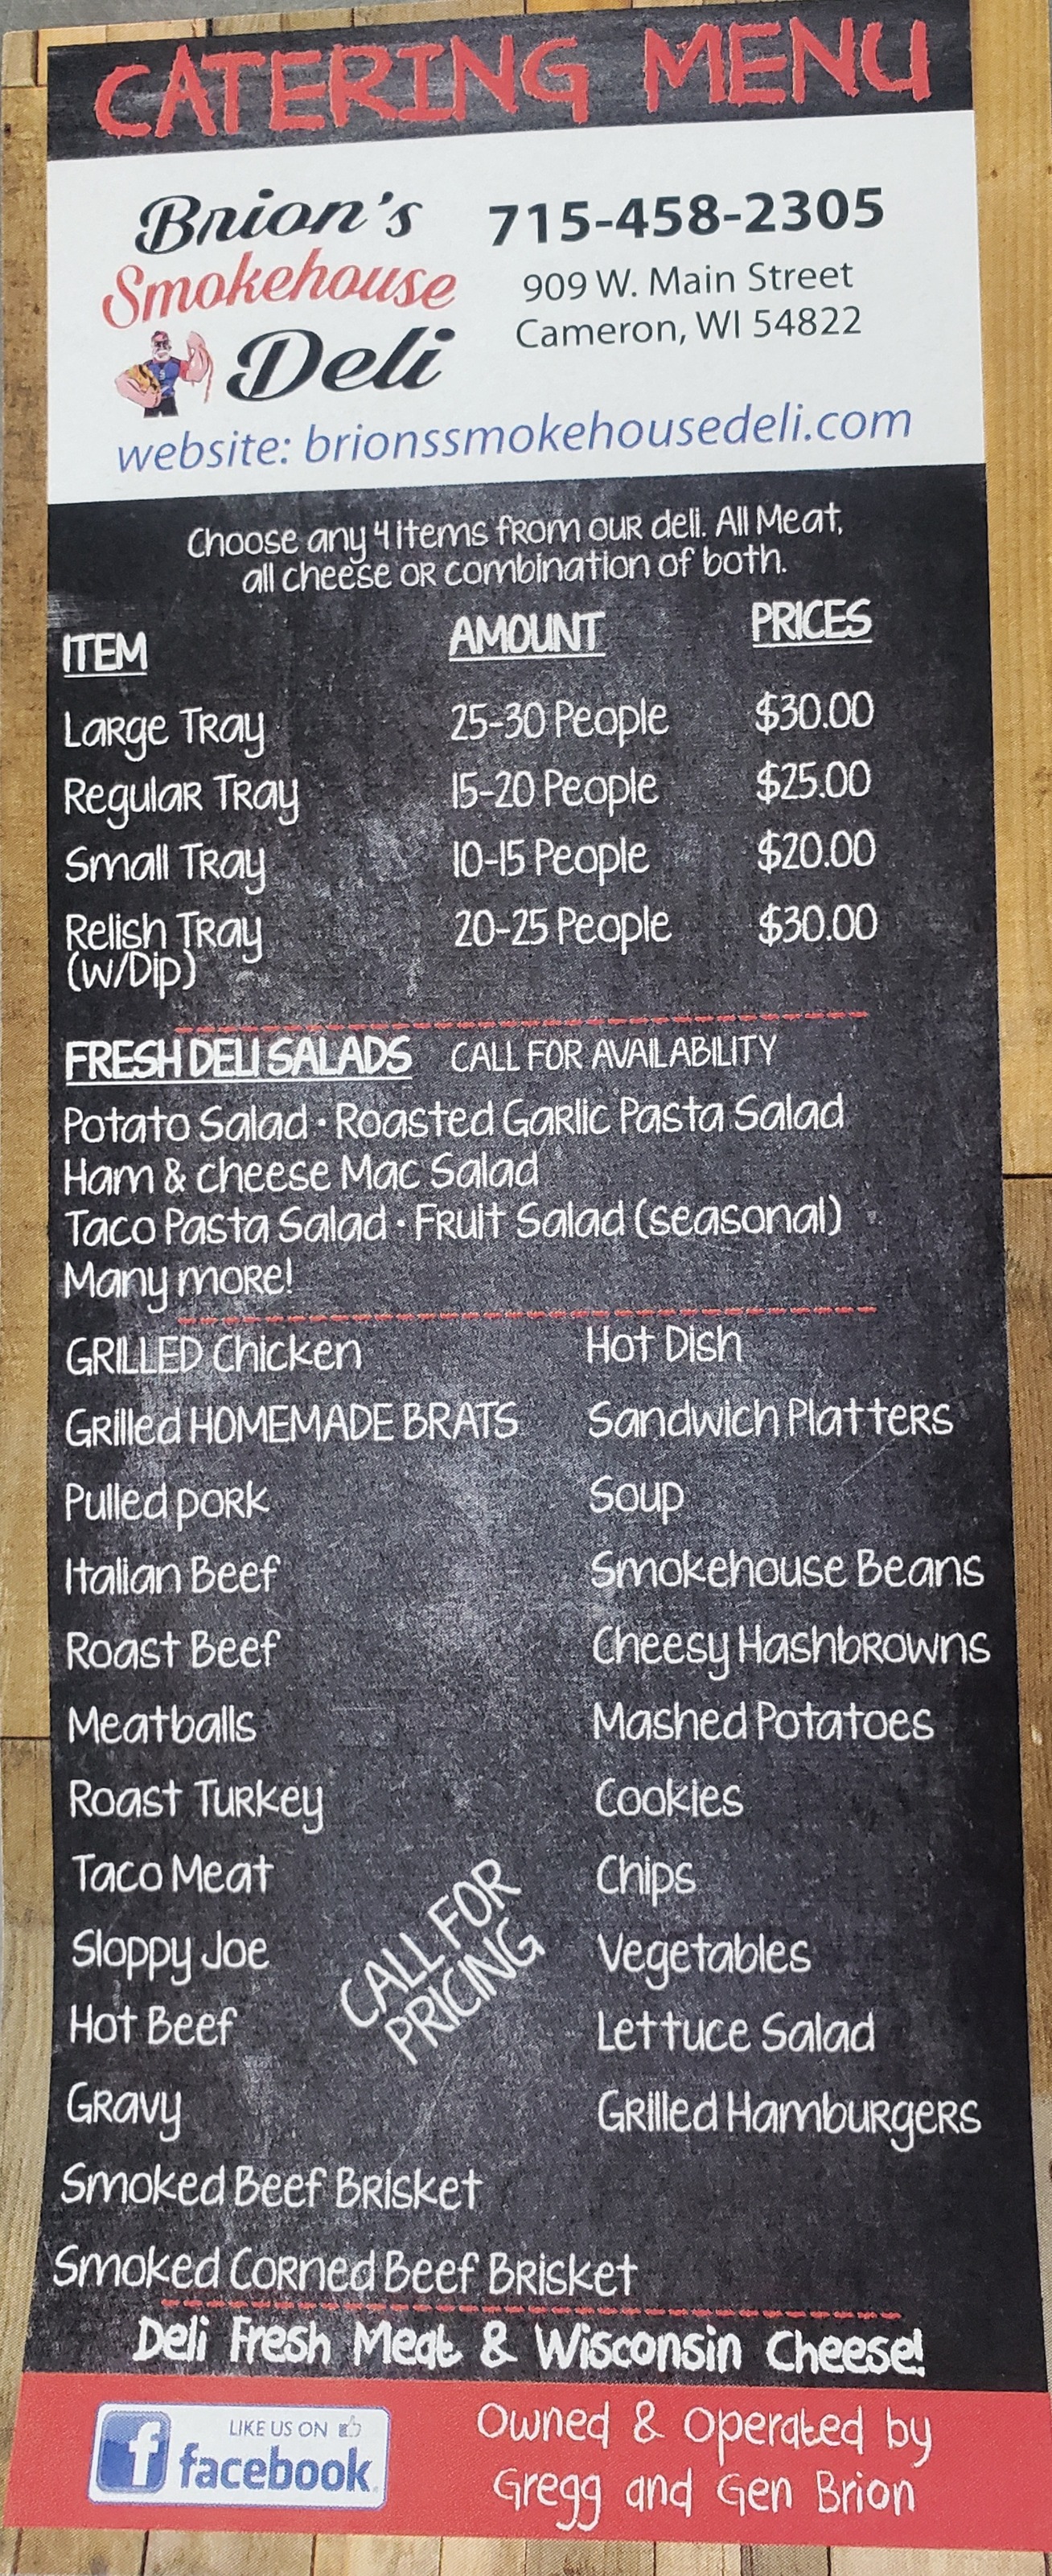 CATERING MENU
Brion's
Smokehouse
Deli
715-458-2305
909 W. Main Street
Cameron, WI 54822
website: brionssmokehousedeli.com
Choose any 4 items from our deli. All Meat,
all cheese or combination of both.
ITEM AMOUNT PRICES
Large Tray 25-30 People $30.00
Regular Tray 15-20 People $25.00
Small Tray 10-15 People $20.00
Relish Tray 20-25 People $30.00
(w/Dip)
FRESH DELI SALADS CALL FOR AVAILABILITY
Potato Salad · Roasted Garlic Pasta Salad
Ham & cheese Mac Salad
Taco Pasta Salad · Fruit Salad (seasonal)
Many more!
GRILLED Chicken
Grilled HOMEMADE BRATS
Pulled pork
Italian Beef
Roast Beef
Meatballs
Roast Turkey
Taco Meat
Sloppy Joe
Hot Beef
Gravy
Smoked Beef Brisket
Smoked Corned Beef Brisket
CALL FOR
PRICING
Hot Dish
Sandwich Platters
Soup
Smokehouse Beans
Cheesy Hashbrowns
Mashed Potatoes
Cookies
Chips
Vegetables
Lettuce Salad
Grilled Hamburgers
Deli Fresh Meat & Wisconsin Cheese!
f
LIKE US ON
facebook
Owned & Operated by
Gregg and Gen Brion